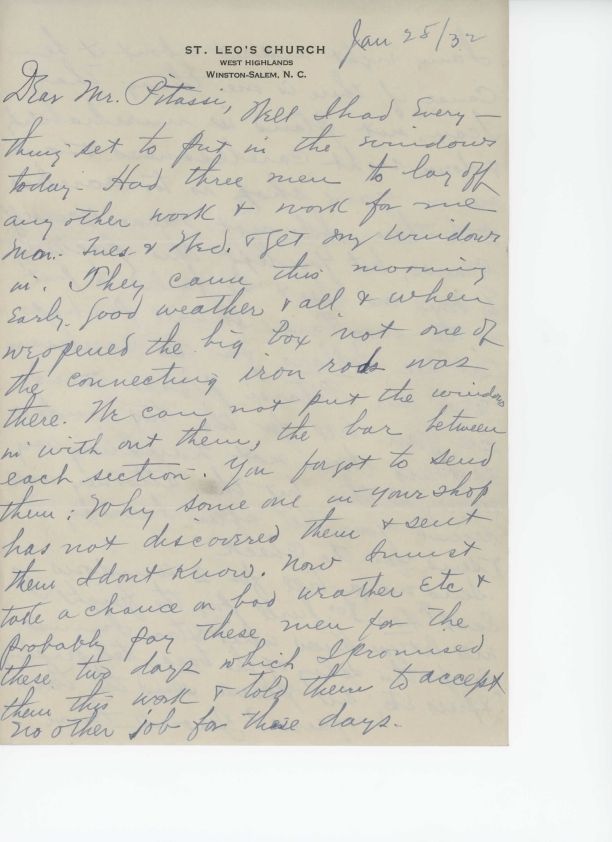 Jan 25/32
ST. LEO'S CHURCH
WEST HIGHLANDS
WINSTON-SALEM, N. C.
Dear Mr. Pitassi,
Well I had Every-
thing set to put in the windows
today. Had three men to lay off
any other work & work for me
Mon. Tues. & Wed. & get my windows
in. They came this morning
Early. Good weather & all & when
we opened the big box not one of
the connecting iron rods was
there. We can not put the windows
in with out them, the bar between
each section. You forgot to send
them: Why some one in your shop
has not discovered them & sent
them I dont know. Now I must
take a chance on bad weather etc &
probably pay these men for the
these two days which I promised
them this work & told them to accept
no other job for these days.